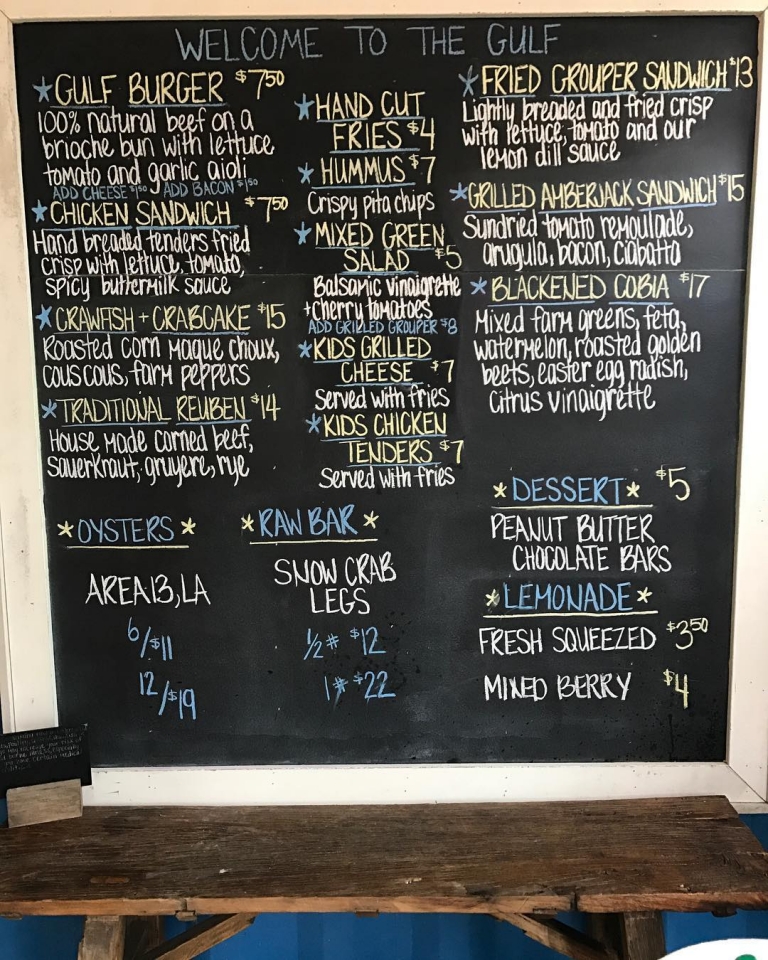 WELCOME TO THE GULF
*GULF BURGER $7.50
100% natural beef on a
brioche bun with lettuce
tomato and garlic aioli
ADD CHEESE $1.50 ADD BACON $1.50
*CHICKEN SANDWICH $7.50
Hand breaded tenders fried
crisp with lettuce, tomato,
spicy buttermilk sauce
*CRAWFISH + CRABCAKE $15
Roasted corn maque choux,
couscous, farm peppers
*TRADITIONAL REUBEN $14
House made corned beef,
sauerkraut, gruyere, rye
*HAND CUT
FRIES $4
*HUMMUS $7
Crispy pita chips
*MIXED GREEN
SALAD $5
Balsamic vinaigrette
+cherry tomatoes
ADD GRILLED GROUPER $8
*KIDS GRILLED
CHEESE $7
Served with fries
*KIDS CHICKEN
TENDERS $7
Served with fries
*FRIED GROUPER SANDWICH $13
Lightly breaded and fried crisp
with lettuce, tomato and our
lemon dill sauce
*GRILLED AMBERJACK SANDWICH $15
Sundried tomato remoulade,
arugula, bacon, ciabatta
*BLACKENED COBIA $17
Mixed farm greens, feta,
watermelon, roasted golden
beets, easter egg radish,
citrus vinaigrette
*OYSTERS*
AREA 13, LA
6/$11
12/$19
*RAW BAR*
SNOW CRAB
LEGS
½# $12
1# $22
*DESSERT* $5
PEANUT BUTTER
CHOCOLATE BARS
*LEMONADE*
FRESH SQUEEZED $3.50
MIXED BERRY $4